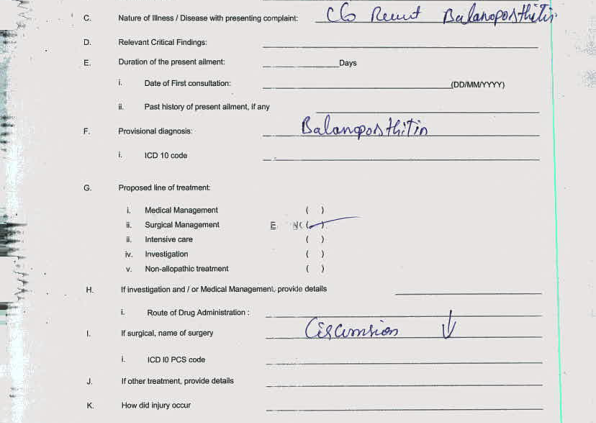 C. Nature of Illness / Disease with presenting complaint: C/o Recurrent Balanoposthitis
D. Relevant Critical Findings:
E. Duration of the present ailment: Days
i. Date of First consultation: (DD/MM/YYYY)
ii. Past history of present ailment, if any
F. Provisional diagnosis: Balanoposthitis
i. ICD 10 code
G. Proposed line of treatment:
i. Medical Management ( )
ii. Surgical Management ( )
ii. Intensive care ( )
iv. Investigation ( )
v. Non-allopathic treatment ( )
H. If investigation and / or Medical Management, provide details
i. Route of Drug Administration :
I. If surgical, name of surgery Circumsion ↓
i. ICD I0 PCS code
J. If other treatment, provide details
K. How did injury occur